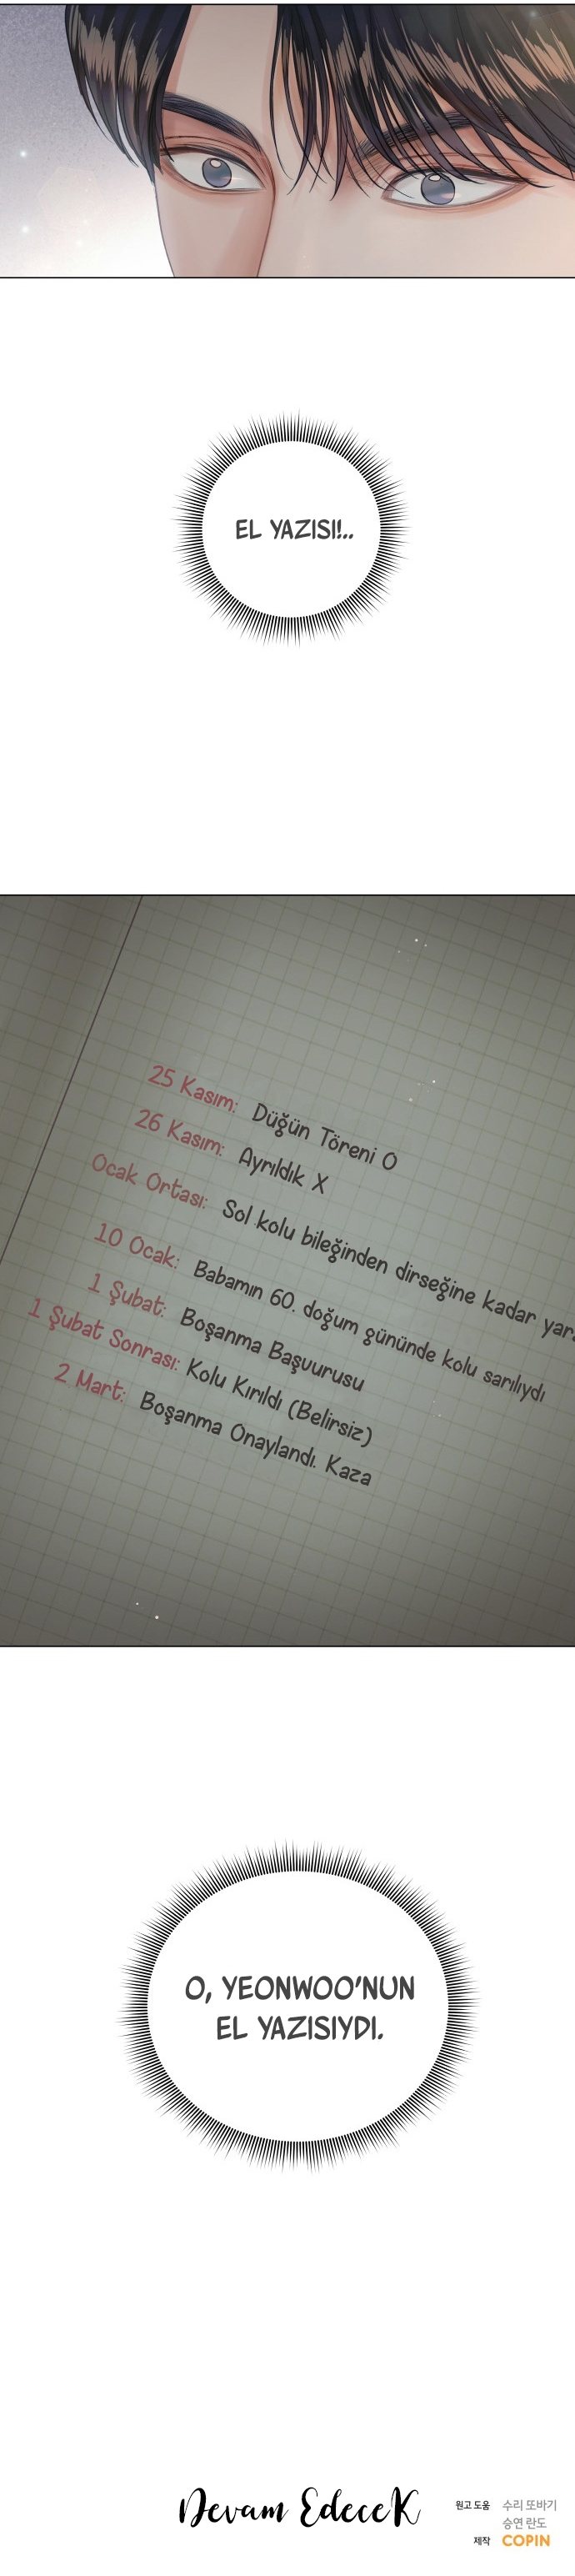 EL YAZISI!..
25 Kasım: Düğün Töreni O
26 Kasım: Ayrıldık X
Ocak Ortası: Sol kolu bileğinden dirseğine kadar
10 Ocak: Babamın 60. doğum gününde kolu sarılıydı
1 Şubat: Boşanma Başvurusu
1 Şubat Sonrası: Kolu Kırıldı (Belirsiz)
2 Mart: Boşanma Onaylandı. Kaza
O, YEONWOO'NUN
EL YAZISIYDI.
Devam EdeceK
원고 도움 수리 또바기
승연 란도
제작 COPIN